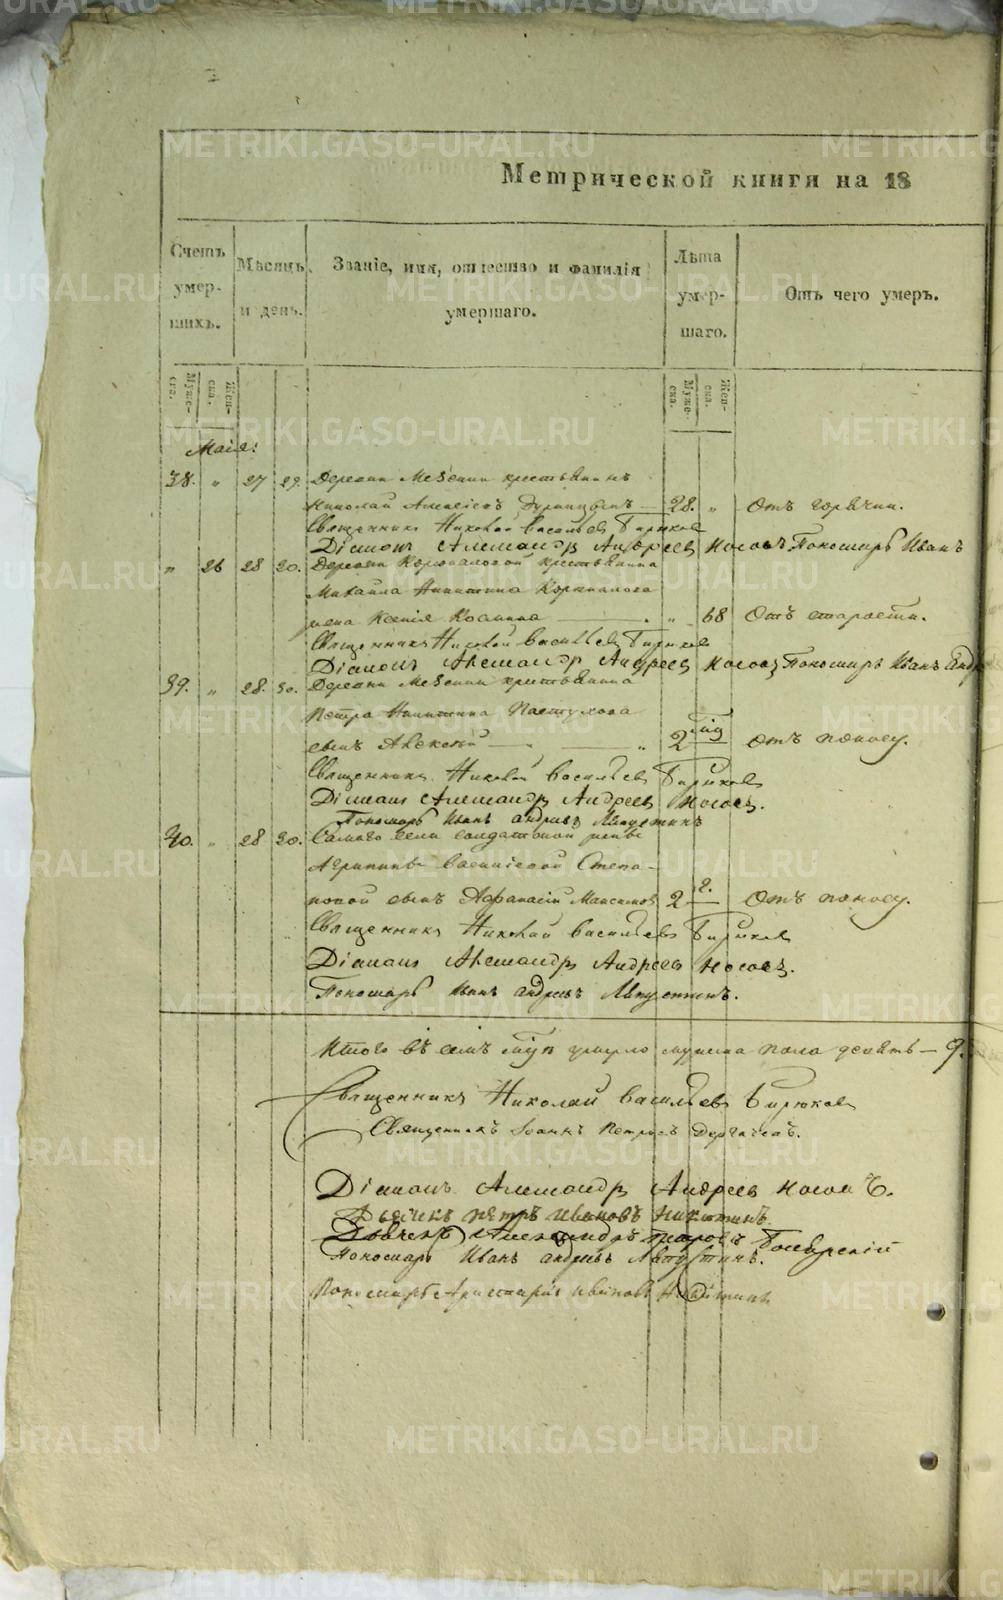 Метрической книги на 18
Счетъ умер-шихъ.
Мѣсяцъ и день.
Званіе, имя, отчество и фамилія умершаго.
Лѣта умер-шаго.
Отъ чего умеръ.
Муже-ска. Жен-ска.
Муже-ска. Жен-ска.
Маія:
38. „ 27 29. Деревни Мезении крестьянинъ
Николай Алексѣевъ — 28. „ Отъ горячки.
Священникъ Николай Васильевъ Бирюковъ
Діаконъ Александръ Андреевъ Носовъ Пономарь Иванъ
„ 26 28 30. Деревни крестьянина
Михаила Никитина
жена Ксенія — „ 68 Отъ старости.
Священникъ Николай Васильевъ Бирюковъ
Діаконъ Александръ Андреевъ Носовъ Пономарь Иванъ Андр
39. „ 28. 30. Деревни Мезении крестьянина
Петра Никитина Пастухова
сынъ Алексѣй — „ 2 год отъ поносу.
Священникъ Николай Васильевъ Бирюковъ
Діаконъ Александръ Андреевъ Носовъ.
Пономарь Иванъ Андреевъ
40. „ 28 30. Самаго села солдатской жены
Агрипины Василіевой Степа-
новой сынъ Афанасій Максимовъ 2 г. Отъ поносу.
Священникъ Николай Васильевъ Бирюковъ
Діаконъ Александръ Андреевъ Носовъ.
Пономарь Иванъ Андреевъ
Итого въ семъ умерло мужеска пола девять — 9.
Священникъ Николай Васильевъ Бирюковъ
Священникъ Іоаннъ Петровъ
Діаконъ Александръ Андреевъ Носовъ.
Дьячекъ Петръ Ивановъ Никитинъ.
Дьячекъ Александръ Петровъ
Пономарь Иванъ Андреевъ
Пономарь Аристархъ Ивановъ Никитинъ
METRIKI.GASO-URAL.RU